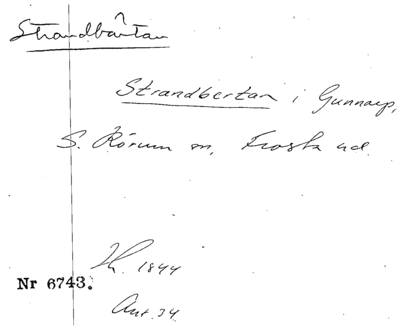 Strandbärtan
Strandbertan i Gunnarp,
S. Rörum sn, Frosta hd.
Th. 1844
Nr 6743.
Ant. 34.